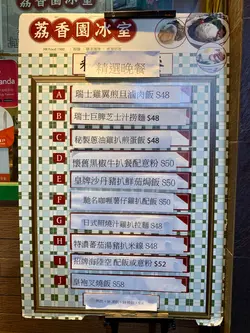 荔香園冰室
精選晚餐
A 瑞士雞翼煎旦滷肉飯 $48
B 瑞士巨髀芝士汁撈麵 $48
C 秘製蔥油雞扒煎蛋飯 $48
D 懷舊黑椒牛扒餐配意粉 $50
E 皇牌沙丹豬扒鮮茄焗飯 $50
F 馳名咖喱薯仔雞扒配飯 $50
G 日式照燒汁雞扒拉麵 $48
H 特濃番茄湯豬扒米線 $48
I 招牌海陸空 配飯或意粉 $52
J 皇袍叉燒飯 $58